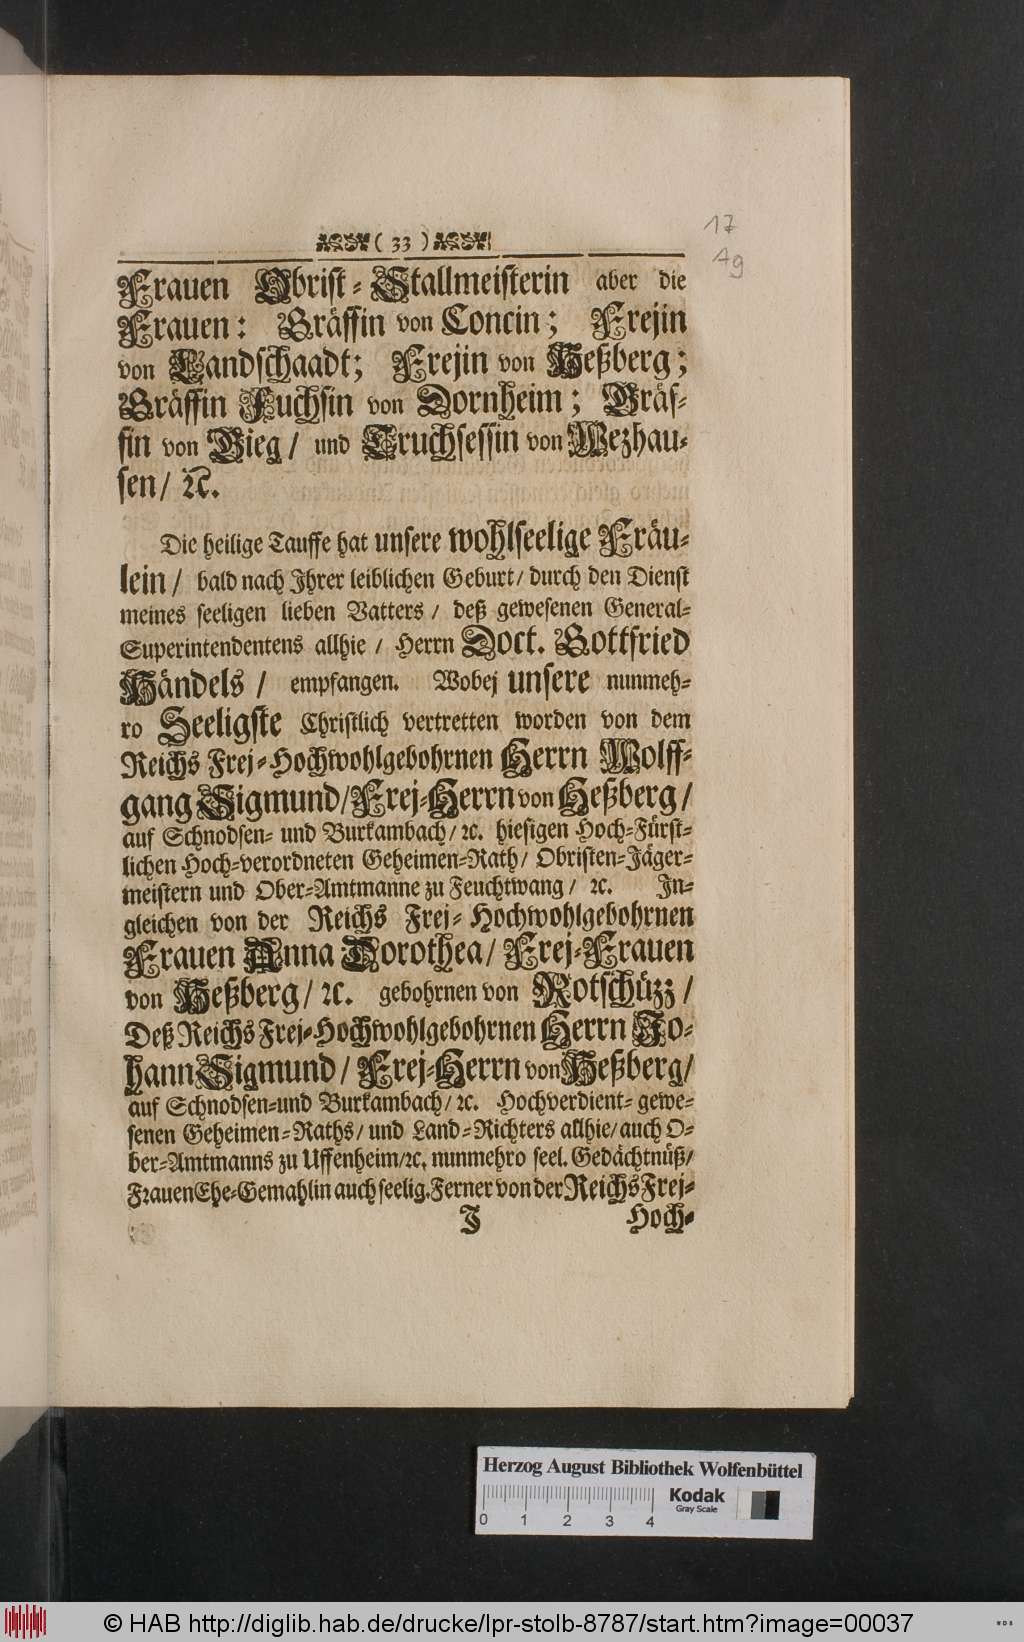 ( 33 )
17
19
Frauen Obrist-Stallmeisterin aber die
Frauen: Gräffin von Concin; Frejin
von Landschaadt; Frejin von Heßberg;
Gräffin Fuchsin von Dornheim; Gräf-
fin von Gieg / und Truchsessin von Wezhau-
sen / ꝛc.
Die heilige Tauffe hat unsere wohlseelige Fräu-
lein / bald nach Ihrer leiblichen Geburt / durch den Dienst
meines seeligen lieben Vatters / deß gewesenen General-
Superintendentens allhie / Herrn Doct. Gottfried
Händels / empfangen. Wobej unsere nunmeh-
ro Seeligste Christlich vertretten worden von dem
Reichs Frej-Hochwohlgebohrnen Herrn Wolff-
gang Sigmund / Frej-Herrn von Heßberg /
auf Schnodsen- und Burkambach / ꝛc. hiesigen Hoch-Fürst-
lichen Hoch-verordneten Geheimen-Rath / Obristen-Jäger-
meistern und Ober-Amtmanne zu Feuchtwang / ꝛc. In-
gleichen von der Reichs Frej-Hochwohlgebohrnen
Frauen Anna Dorothea / Frej-Frauen
von Heßberg / ꝛc. gebohrnen von Rotschüzz /
Deß Reichs Frej-Hochwohlgebohrnen Herrn Jo-
hann Sigmund / Frej-Herrn von Heßberg /
auf Schnodsen- und Burkambach / ꝛc. Hochverdient-gewe-
senen Geheimen-Raths / und Land-Richters allhie / auch O-
ber-Amtmanns zu Uffenheim / ꝛc. nunmehro seel. Gedächtnüß /
Frauen Ehe-Gemahlin auch seelig. Ferner von der Reichs Frej-
J Hoch-
Herzog August Bibliothek Wolfenbüttel
Kodak
Gray Scale
0 1 2 3 4
© HAB http://diglib.hab.de/drucke/lpr-stolb-8787/start.htm?image=00037